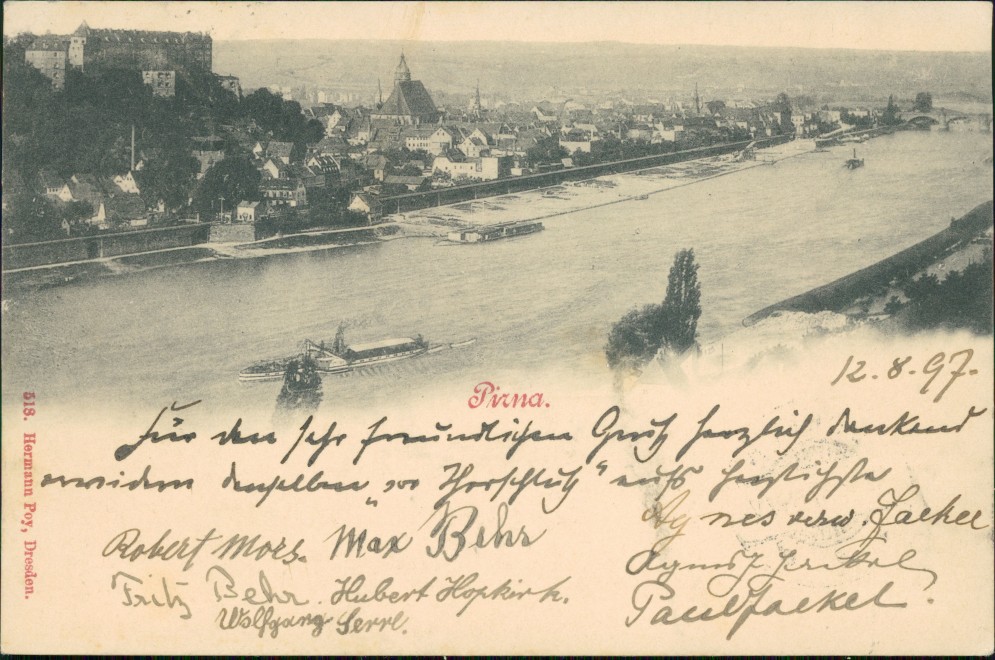 Pirna.
12.8.97.
Für den sehr freundlichen Gruß herzlich dankend
erwidern denselben aufs herzlichste
Agnes verw. Jaekel
Robert Moes. Max Behr
Fritz Behr. Hubert Hopkirk.
Paul Jaekel.
Wolfgang
518. Hermann Poy, Dresden.